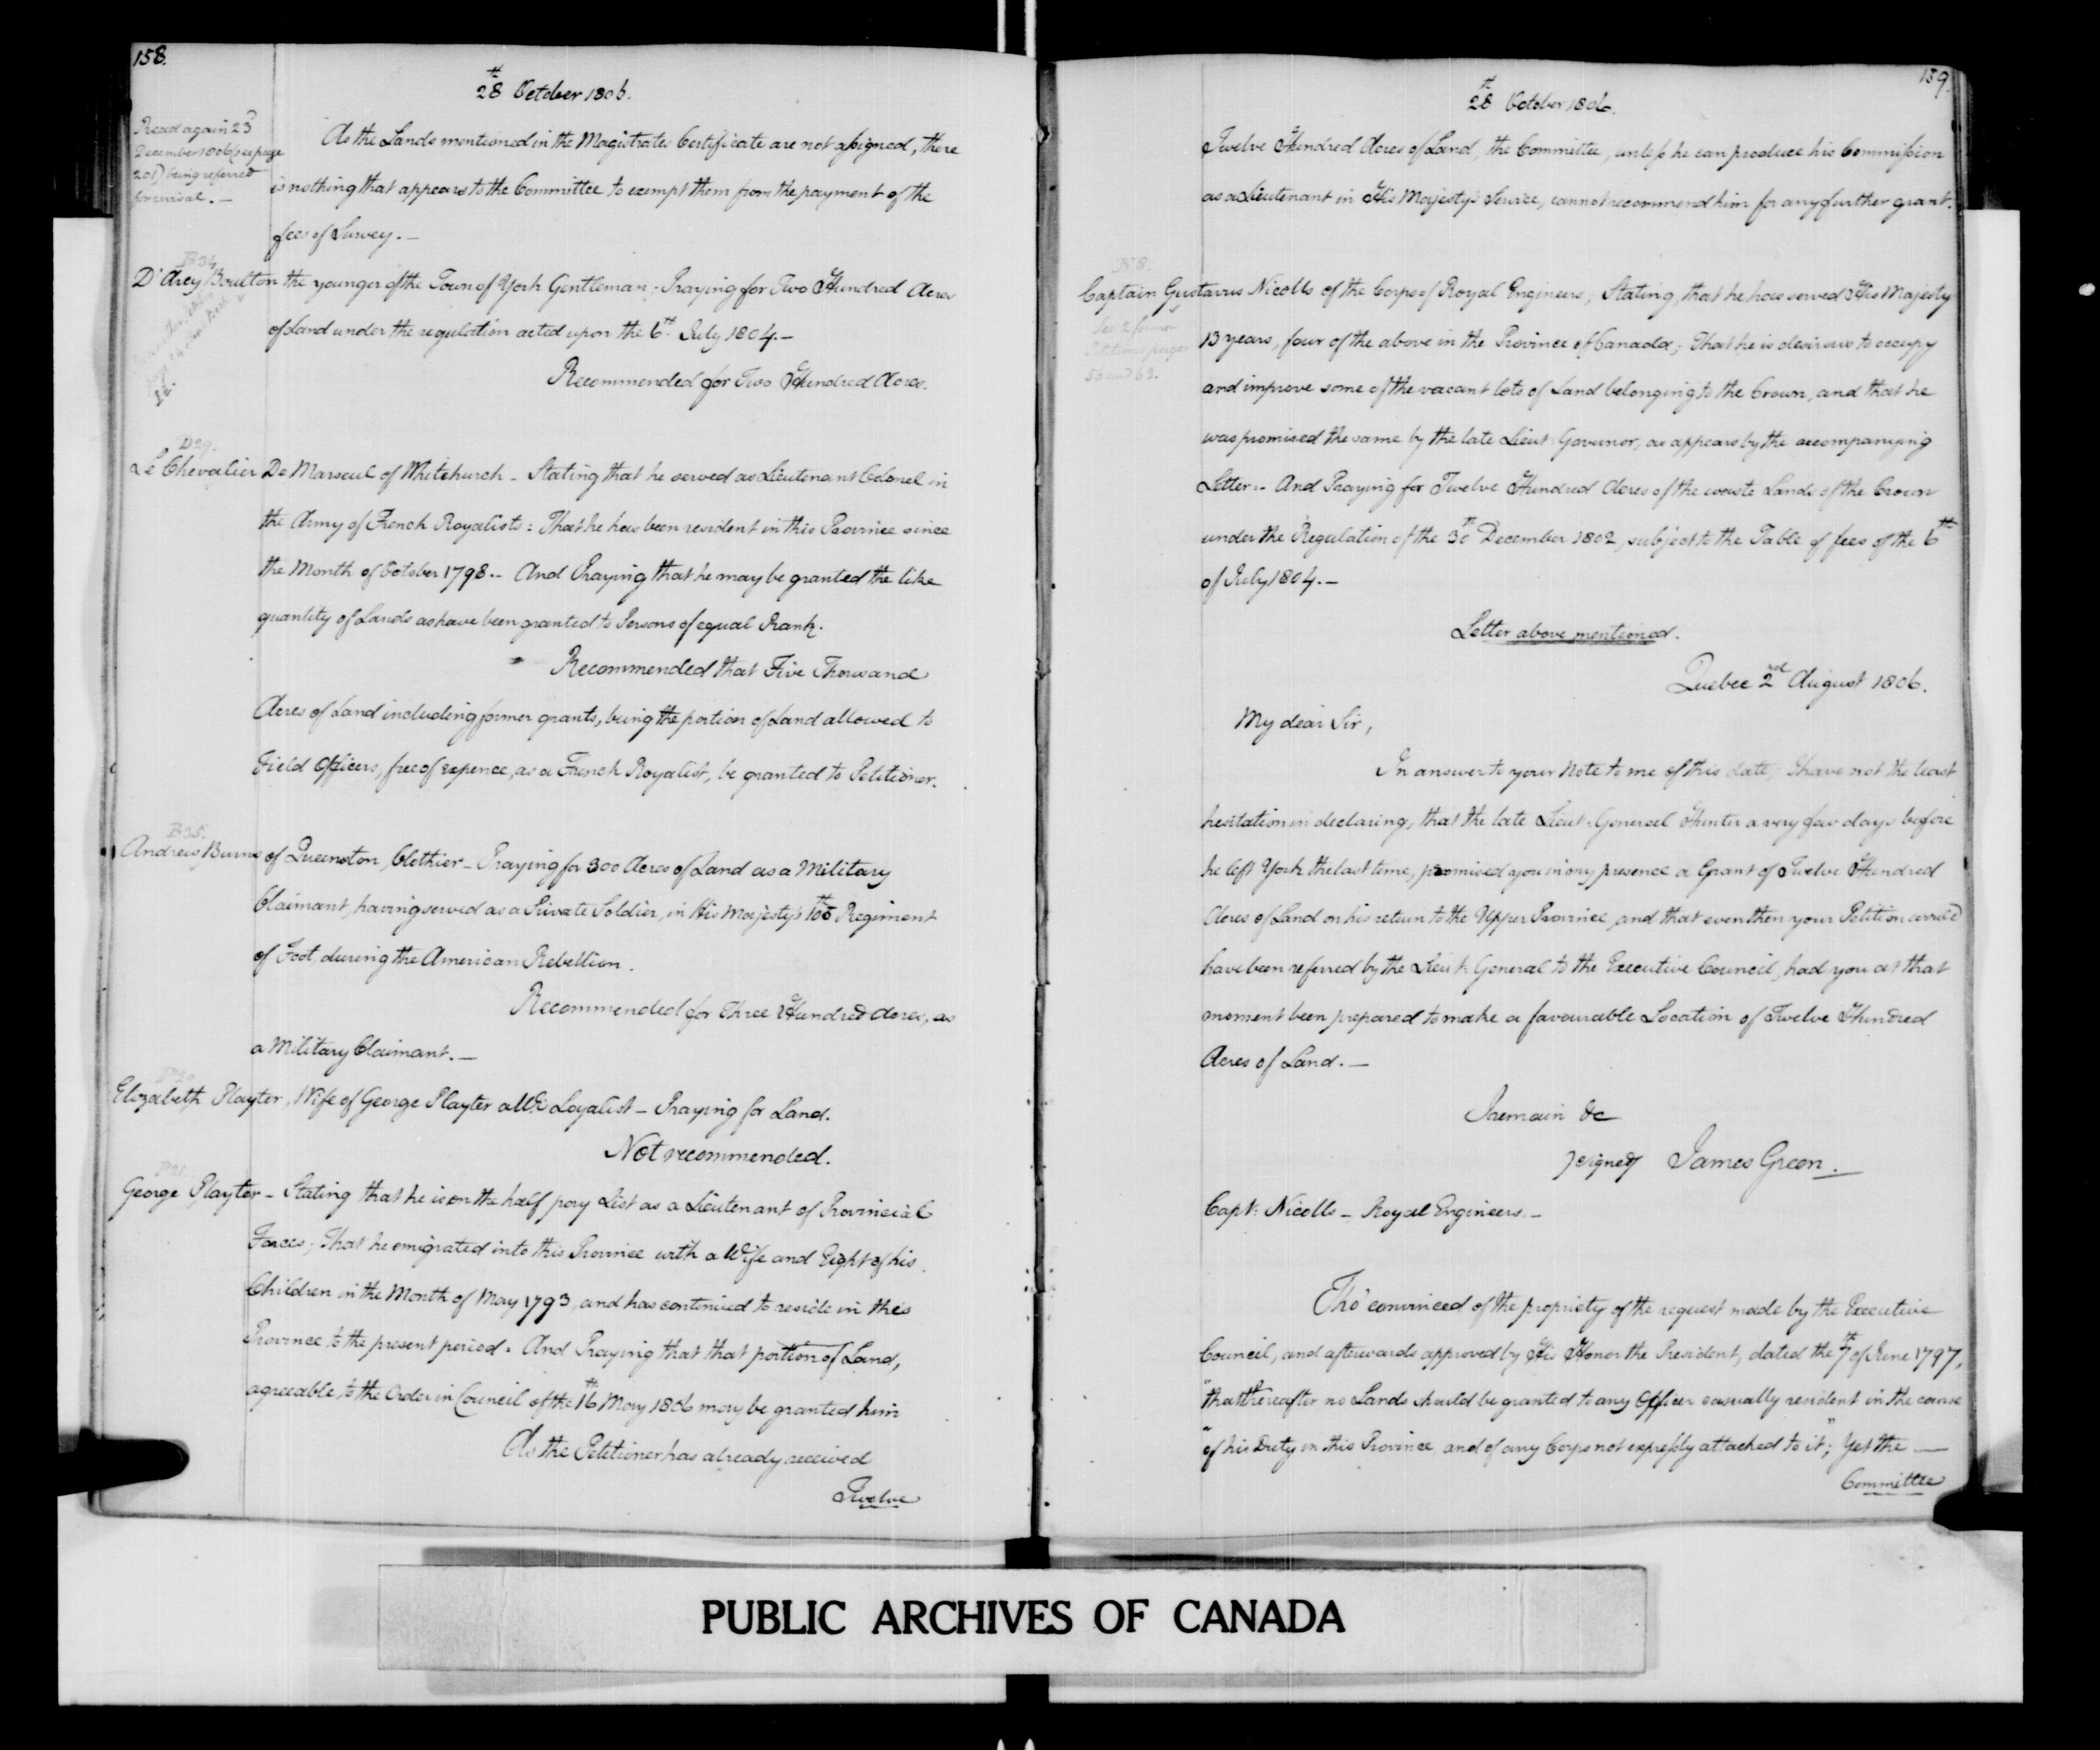 158.
28th October 1806.
Read again 23d
December 1806 (see page
201) being referred
for revisal. —
As the Lands mentioned in the Magistrates Certificate are not assigned, there
is nothing that appears to the Committee to exempt them from the payment of the
fees of Survey. —
B 34
D'Arcy Boulton the younger of the Town of York Gentleman. Praying for Two Hundred Acres
of Land under the regulation acted upon the 6th July 1804. —
Recommended for Two Hundred Acres.
D 29.
Le Chevalier De Marseul of Whitchurch — Stating that he served as Lieutenant Colonel in
the Army of French Royalists: That he has been resident in this Province since
the Month of October 1798. – And Praying that he may be granted the like
quantity of Lands as have been granted to Persons of equal Rank.
Recommended that Five Thousand
Acres of Land including former grants, being the portion of Land allowed to
Field Officers, free of expence, as a French Royalist, be granted to Petitioner.
B 35.
Andrew Burns of Queenston, Clothier — Praying for 300 Acres of Land as a Military
Claimant, having served as a Private Soldier, in His Majesty's 100th Regiment
of Foot, during the American Rebellion.
Recommended for Three Hundred Acres, as
a Military Claimant. —
P 20
Elizabeth Playter, Wife of George Playter a UE Loyalist — Praying for Land.
Not recommended.
P 21.
George Playter — Stating that he is on the half pay List as a Lieutenant of Provincial
Forces; That he emigrated into this Province with a Wife and Eight of his
Children in the Month of May 1793, and has continued to reside in this
Province to the present period. And Praying that that portion of Land,
agreeable to the Order in Council of the 16th May 1806 may be granted him
As the Petitioner has already received
Twelve
159.
28th October 1806.
Twelve Hundred Acres of Land, the Committee, unless he can produce his Commission
as a Lieutenant in His Majesty's Service, cannot recommend him for any further grant.
N 8.
Captain Gustavus Nicolls of the Corps of Royal Engineers, Stating, that he has served His Majesty
See 2 former
Petitions pages
56 and 63.
13 years, four of the above in the Province of Canada; That he is desirous to occupy
and improve some of the vacant lots of Land belonging to the Crown, and that he
was promised the same by the late Lieut: Governor, as appears by the accompanying
Letter: – And Praying for Twelve Hundred Acres of the waste Lands of the Crown
under the Regulation of the 30th December 1802, subject to the Table of fees of the 6th
of July 1804. —
Letter above mentioned.
Quebec 2nd August 1806.
My dear Sir,
In answer to your Note to me of this date, I have not the least
hesitation in declaring, that the late Lieut: General Hunter a very few days before
he left York the last time, promised you in my presence a Grant of Twelve Hundred
Acres of Land on his return to the Upper Province, and that even then your Petition would
have been referred by the Lieut: General to the Executive Council, had you at that
moment been prepared to make a favourable Location of Twelve Hundred
Acres of Land. —
I remain &c
signed James Green.
Capt: Nicolls — Royal Engineers. —
Tho' convinced of the propriety of the request made by the Executive
Council, and afterwards approved by His Honor the President, dated the 7th of June 1797,
"that thereafter no Lands should be granted to any Officer casually resident in the course
"of his Duty in this Province, and of any Corps not expressly attached to it"; Yet the —
Committee
PUBLIC ARCHIVES OF CANADA